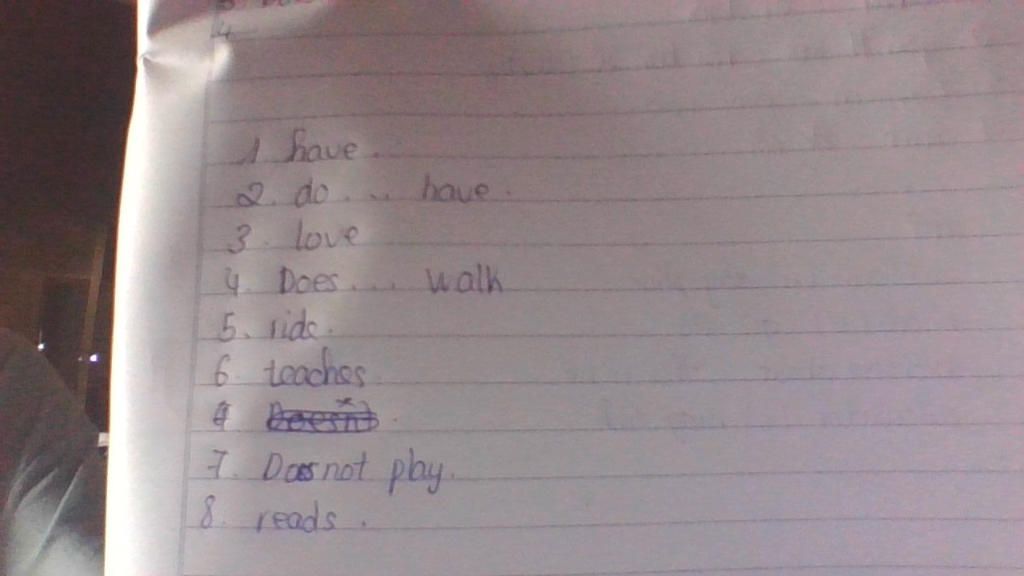 4
1 have.
2. do.... have.
3. love
4. Does.... walk
5. ride.
6. teaches
7. Does not play.
8. reads.